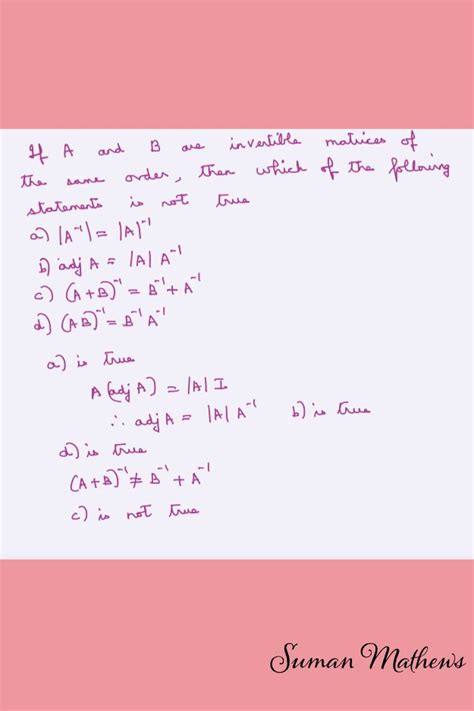 If A and B are invertible matrices of
the same order, then which of the following
statements is not true
a) |A⁻¹| = |A|⁻¹
b) adj A = |A| A⁻¹
c) (A+B)⁻¹ = B⁻¹ + A⁻¹
d) (AB)⁻¹ = B⁻¹ A⁻¹
a) is true
A (adj A) = |A| I
∴ adj A = |A| A⁻¹ b) is true
d) is true
(A+B)⁻¹ ≠ B⁻¹ + A⁻¹
c) is not true
Suman Mathews